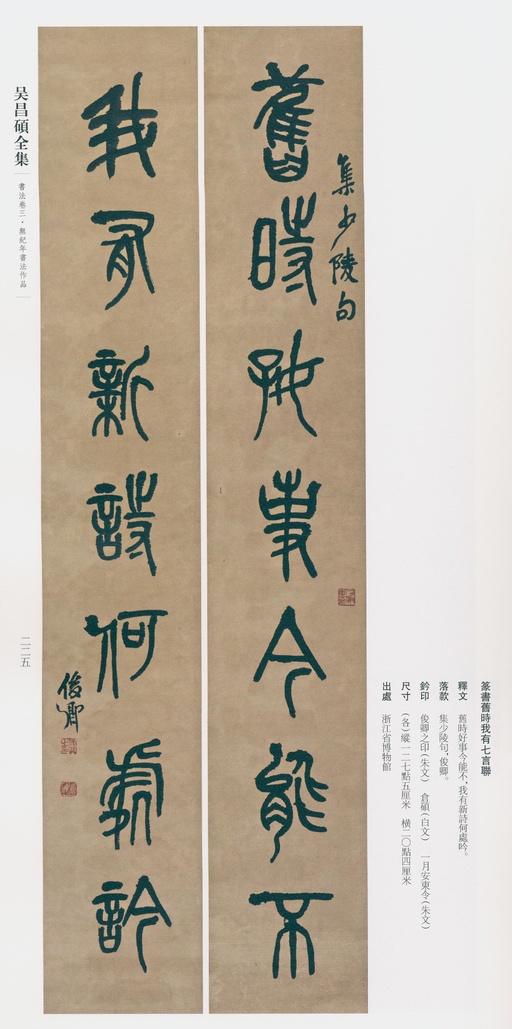 篆書舊時我有七言聯
釋文　舊時好事今能不，我有新詩何處吟。
落款　集少陵句，俊卿。
鈐印　俊卿之印（朱文）　倉碩（白文）　一月安東令（朱文）
尺寸　（各）縱一二七點五厘米　橫二〇點四厘米
出處　浙江省博物館
集少陵句
舊時好事今能不
我有新詩何處吟
俊卿
吴昌碩全集
書法卷三·無紀年書法作品
二二五